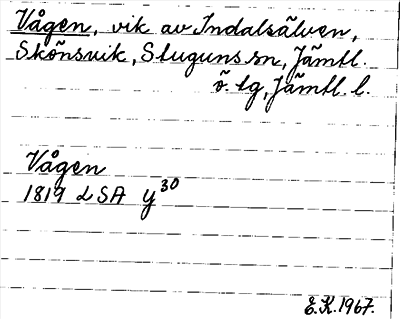 Vågen, vik av Indalsälven,
Skönsvik, Stuguns sn, Jämtl.
ö. tg, Jämtl. l.
Vågen
1819 LSA y30
E.K.1967.